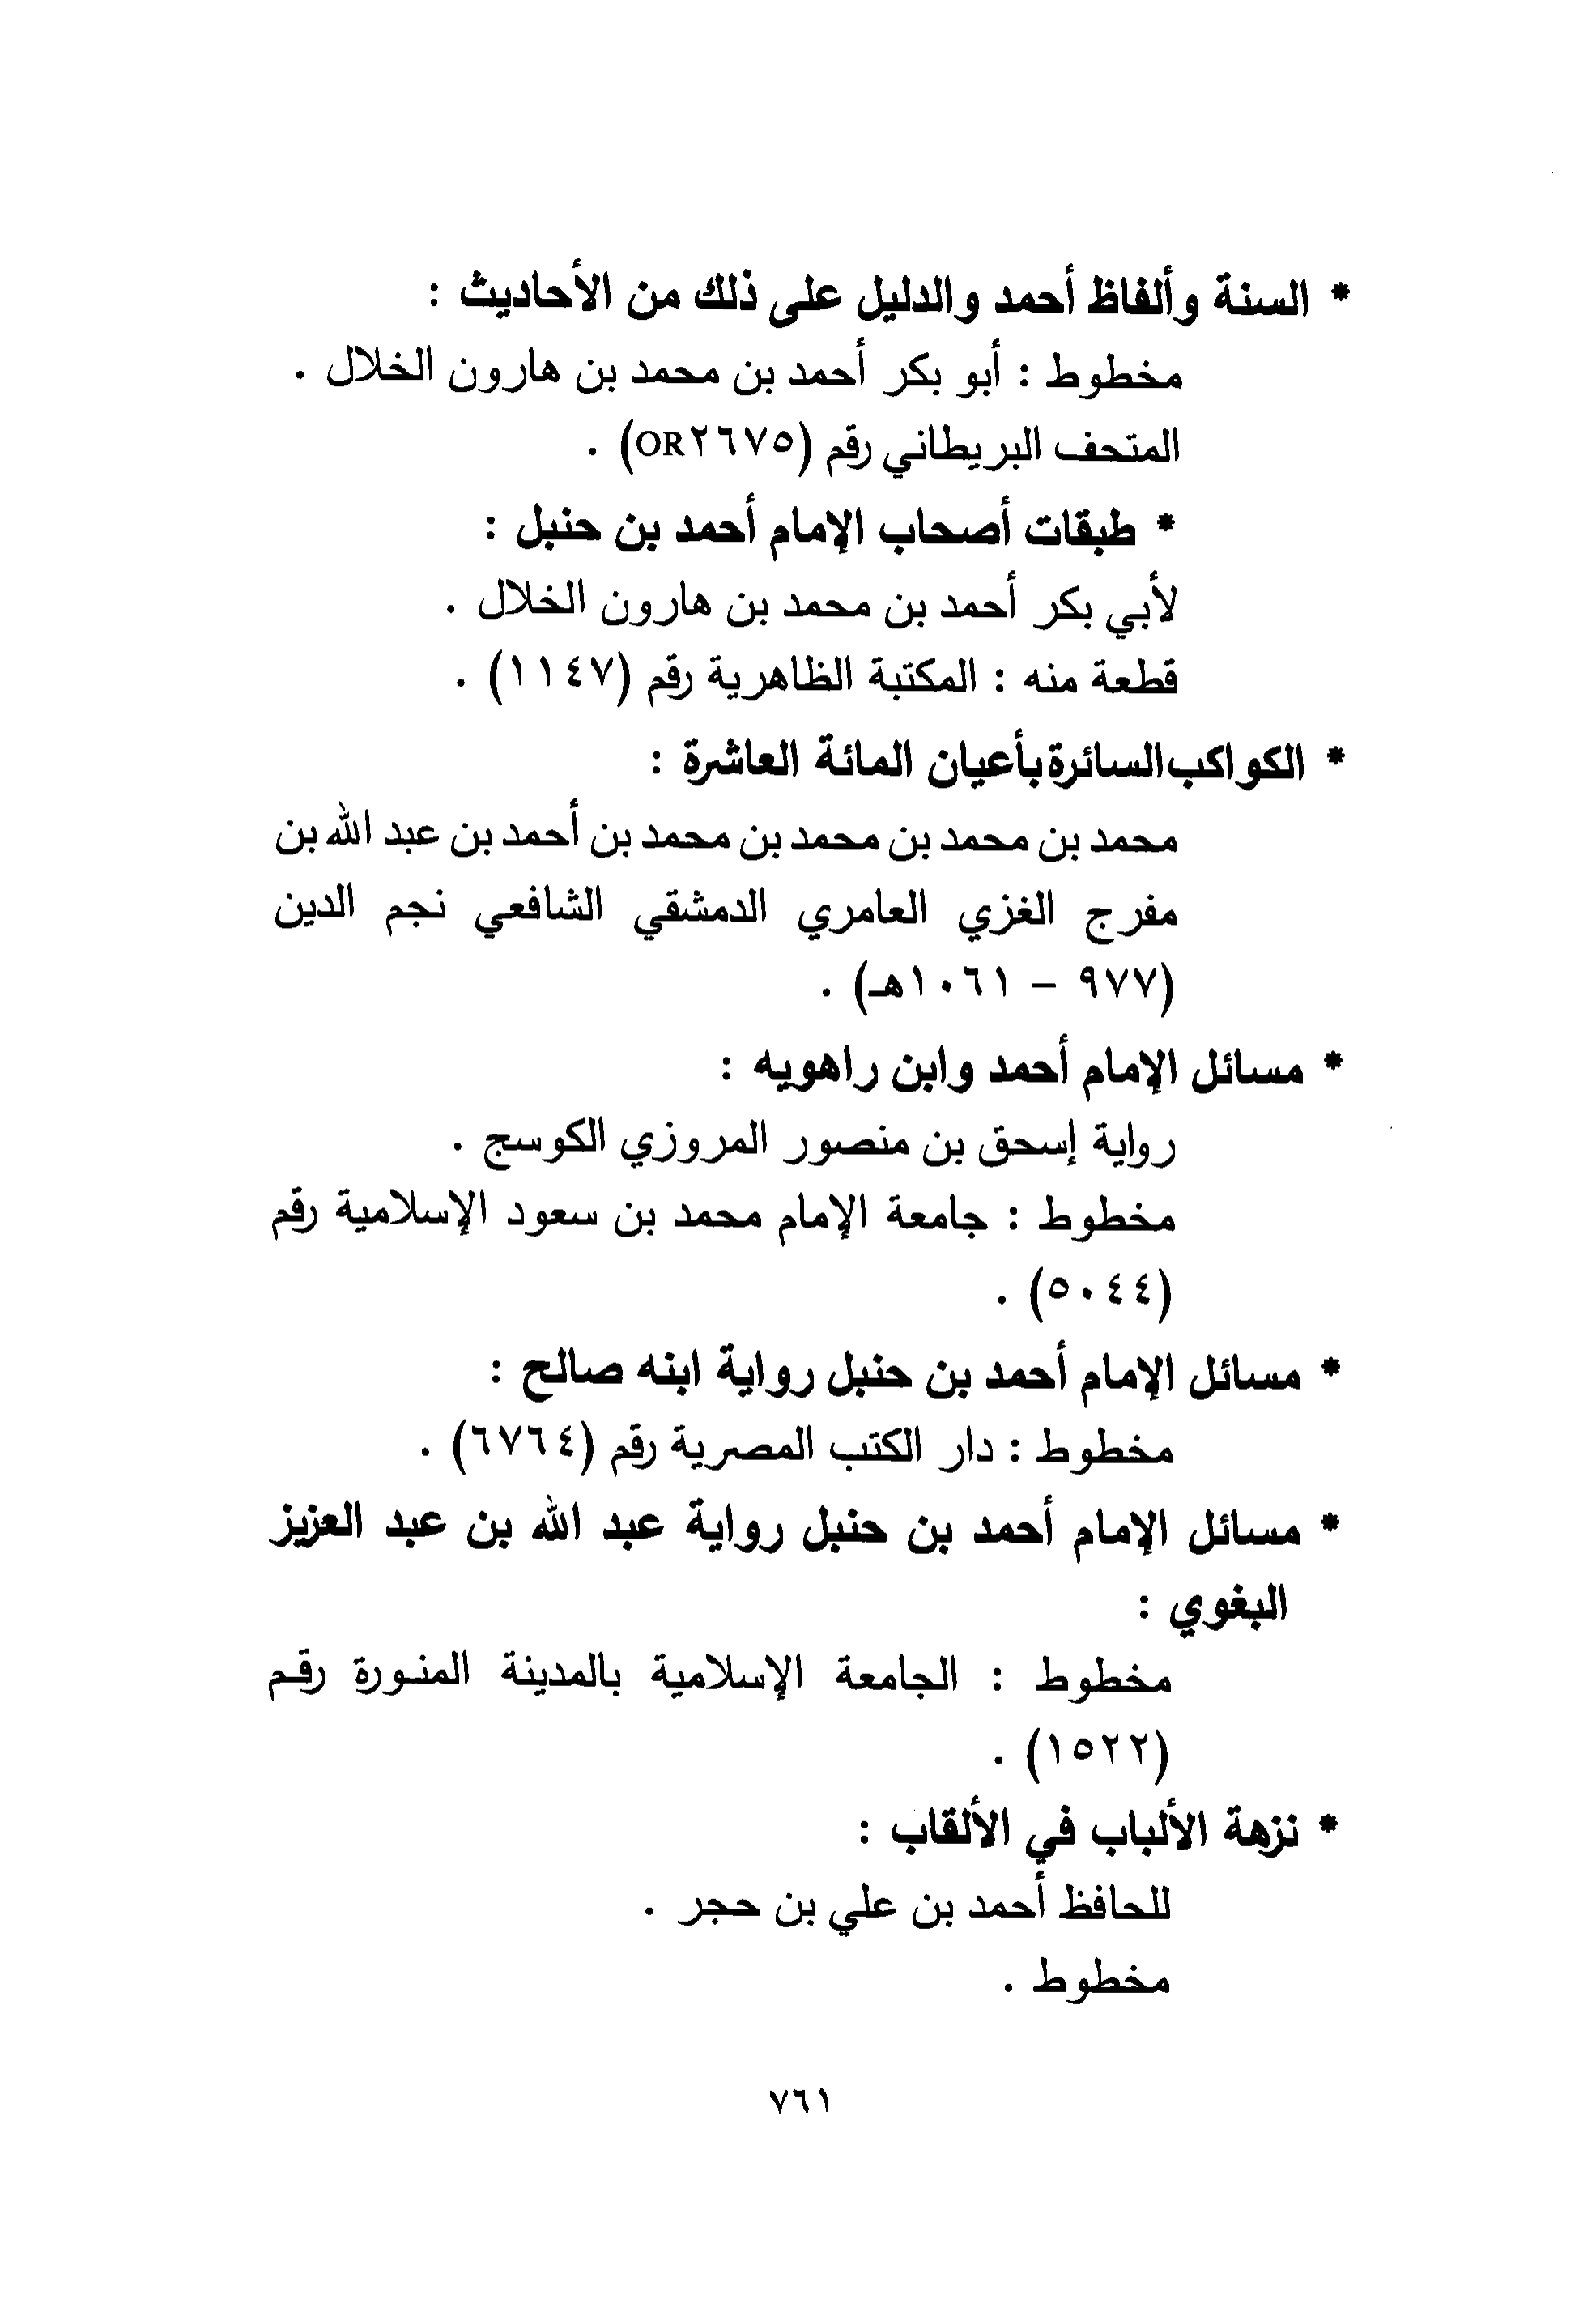 * السنة وألفاظ أحمد والدليل على ذلك من الأحاديث :
مخطوط : أبو بكر أحمد بن محمد بن هارون الخلال .
المتحف البريطاني رقم (OR٢٦٧٥) .
* طبقات أصحاب الإمام أحمد بن حنبل :
لأبي بكر أحمد بن محمد بن هارون الخلال .
قطعة منه : المكتبة الظاهرية رقم (١١٤٧) .
* الكواكب السائرة بأعيان المائة العاشرة :
محمد بن محمد بن محمد بن محمد بن أحمد بن عبد الله بن
مفرج الغزي العامري الدمشقي الشافعي نجم الدين
(٩٧٧ - ١٠٦١هـ) .
* مسائل الإمام أحمد وابن راهويه :
رواية إسحق بن منصور المروزي الكوسج .
مخطوط : جامعة الإمام محمد بن سعود الإسلامية رقم
(٥٠٤٤) .
* مسائل الإمام أحمد بن حنبل رواية ابنه صالح :
مخطوط : دار الكتب المصرية رقم (٦٧٦٤) .
* مسائل الإمام أحمد بن حنبل رواية عبد الله بن عبد العزيز
البغوي :
مخطوط : الجامعة الإسلامية بالمدينة المنورة رقم
(١٥٢٢) .
* نزهة الألباب في الألقاب :
للحافظ أحمد بن علي بن حجر .
مخطوط .
٧٦١